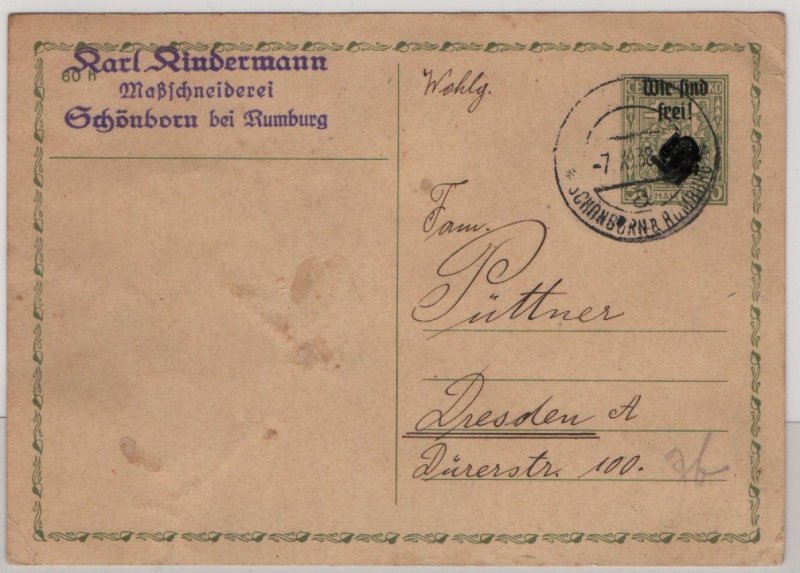 Karl Kindermann
60 h
Maßschneiderei
Schönborn bei Rumburg
Wohlg.
Wir sind
frei!
-7. X. 38
SCHÖNBORN B. RUMBURG
a
Fam.
Püttner
Dresden A
Dürerstr. 100.